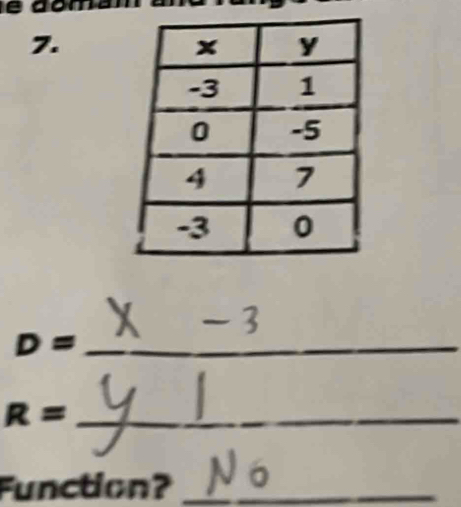 7.
x y
-3 1
0 -5
4 7
-3 0
D = x -3
R = y 1
Function? No